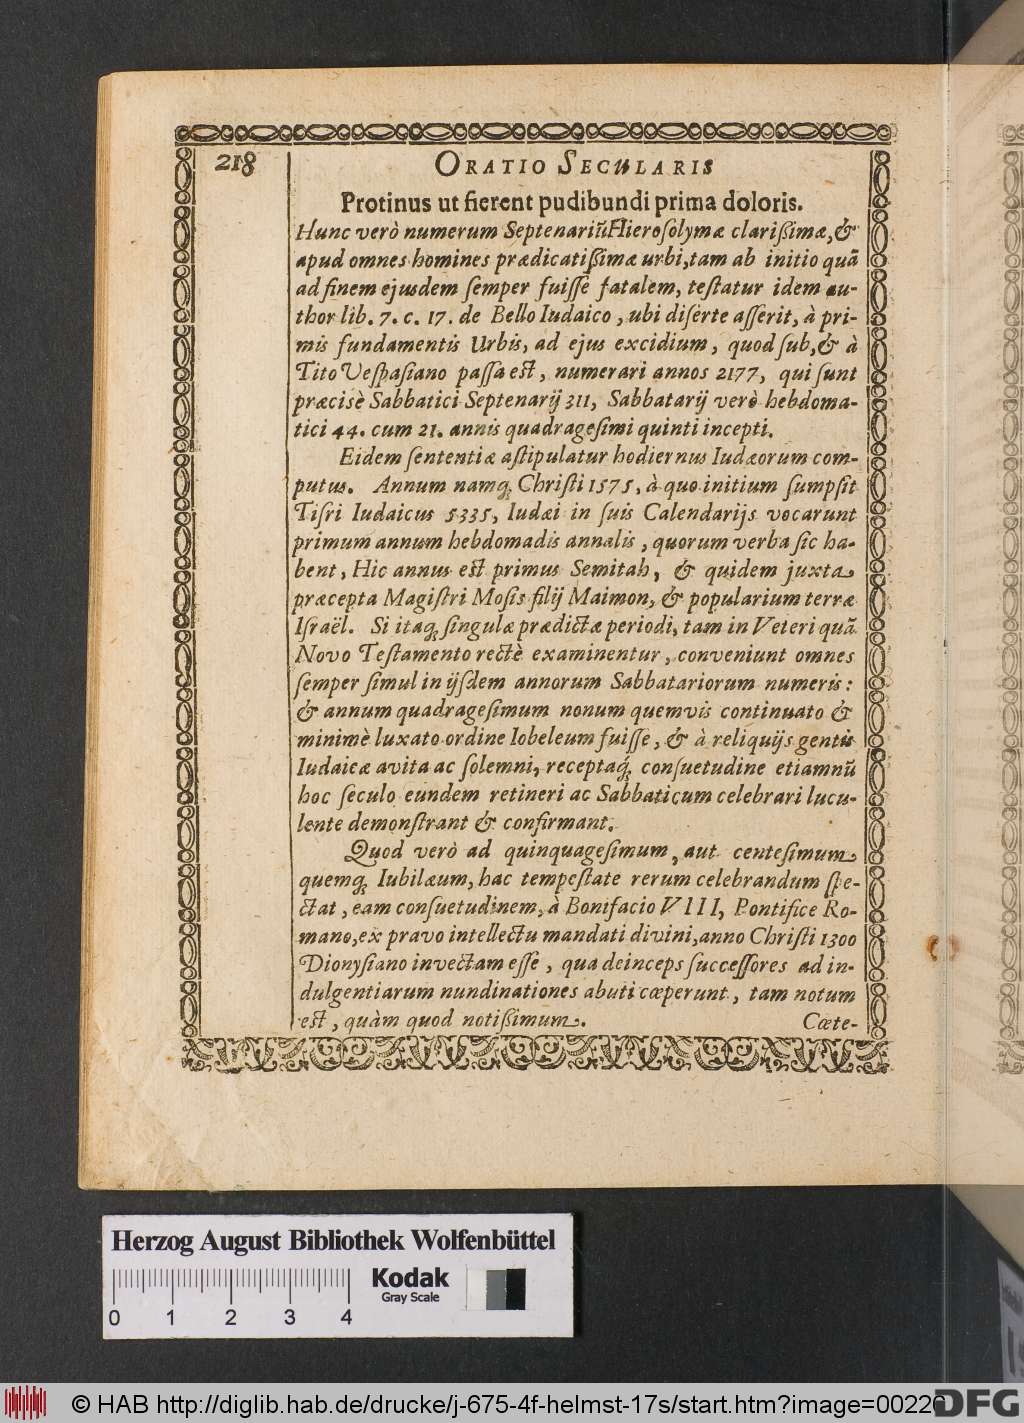 218 ORATIO SECULARIS
Protinus ut fierent pudibundi prima doloris.
Hunc verò numerum Septenariũ Hierosolymæ clarißimæ, &
apud omnes homines prædicatißimæ urbi, tam ab initio quã
ad finem ejusdem semper fuisse fatalem, testatur idem au-
thor lib. 7. c. 17. de Bello Iudaico, ubi diserte asserit, à pri-
mis fundamentis Urbis, ad ejus excidium, quod sub, & à
Tito Vespasiano passa est, numerari annos 2177, qui sunt
præcisè Sabbatici Septenarij 311, Sabbatarij verò hebdoma-
tici 44. cum 21. annis quadragesimi quinti incepti.
Eidem sententiæ astipulatur hodiernus Iudæorum com-
putus. Annum namq; Christi 1575, à quo initium sumpsit
Tisri Iudaicus 5335, Iudæi in suis Calendarijs vocarunt
primum annum hebdomadis annalis, quorum verba sic ha-
bent, Hic annus est primus Semitah, & quidem juxta
præcepta Magistri Mosis filij Maimon, & popularium terræ
Israël. Si itaq; singulæ prædictæ periodi, tam in Veteri quã
Novo Testamento rectè examinentur, conveniunt omnes
semper simul in ijsdem annorum Sabbatariorum numeris:
& annum quadragesimum nonum quemvis continuato &
minimè luxato ordine Iobeleum fuisse, & à reliquijs gentis
Iudaicæ avita ac solemni, receptaq; consuetudine etiamnũ
hoc seculo eundem retineri ac Sabbaticum celebrari lucu-
lente demonstrant & confirmant.
Quod verò ad quinquagesimum, aut centesimum
quemq; Iubilæum, hac tempestate rerum celebrandum spe-
ctat, eam consuetudinem, à Bonifacio VIII, Pontifice Ro-
mano, ex pravo intellectu mandati divini, anno Christi 1300
Dionysiano invectam esse, qua deinceps successores ad in-
dulgentiarum nundinationes abuti cœperunt, tam notum
est, quàm quod notißimum.
Cœte-
Herzog August Bibliothek Wolfenbüttel
Kodak
Gray Scale
0 1 2 3 4
© HAB http://diglib.hab.de/drucke/j-675-4f-helmst-17s/start.htm?image=00226
DFG